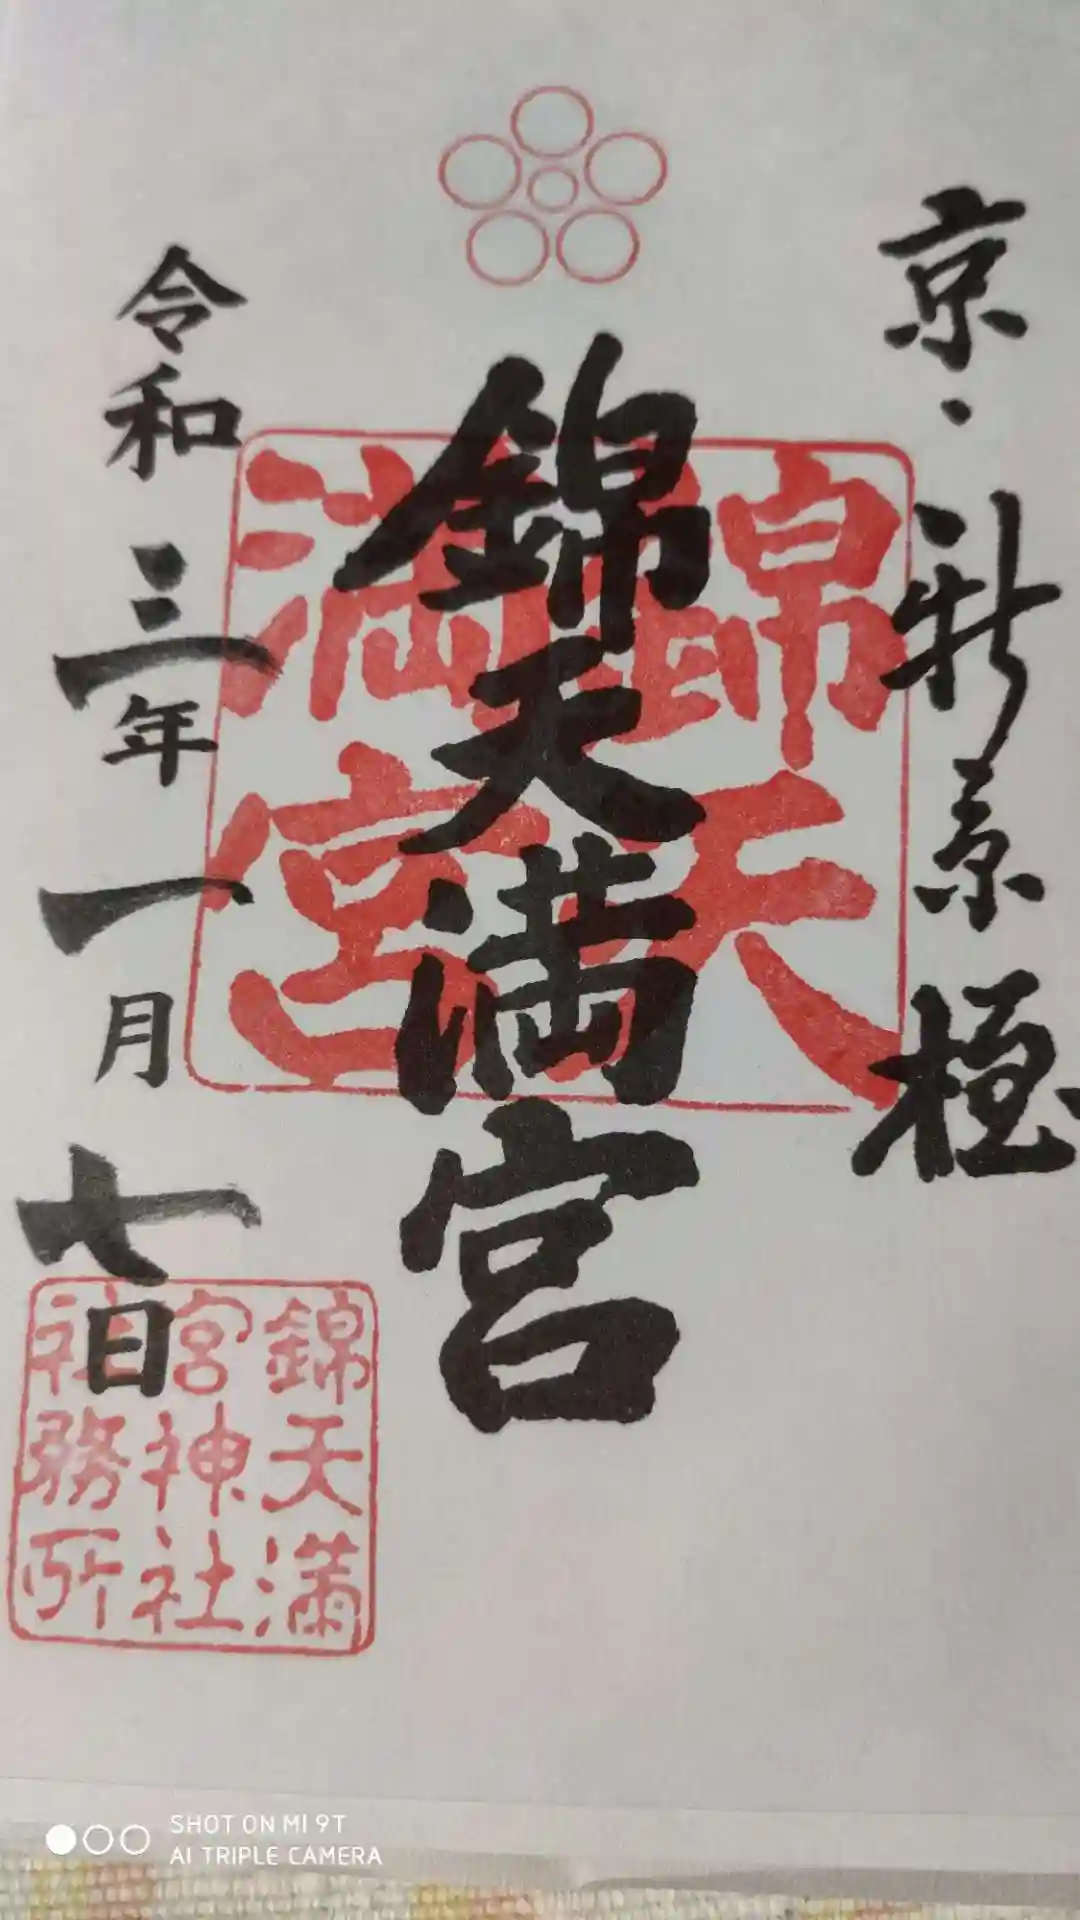 京・新京極
錦天満宮
錦天
満宮
令和三年一月七日
錦天満
宮神社
社務所
SHOT ON MI 9T
AI TRIPLE CAMERA